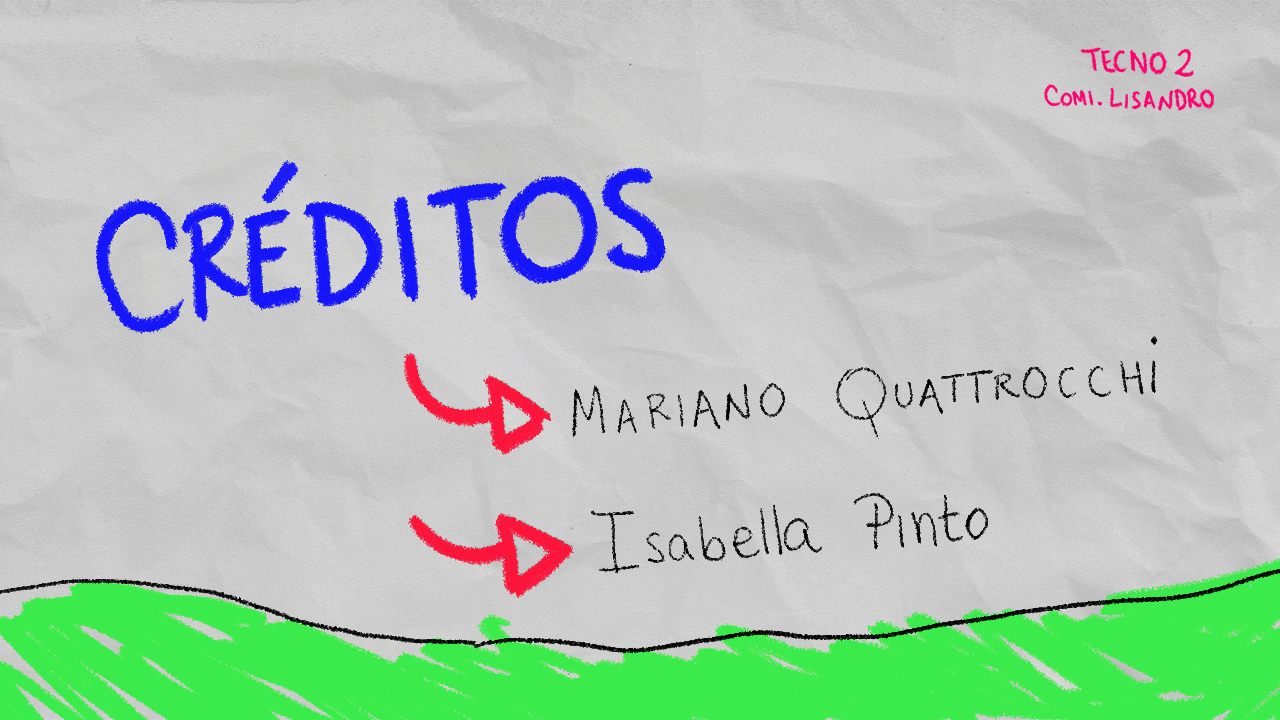 TECNO 2
COMI. LISANDRO
CRÉDITOS
MARIANO QUATTROCCHi
Isabella Pinto